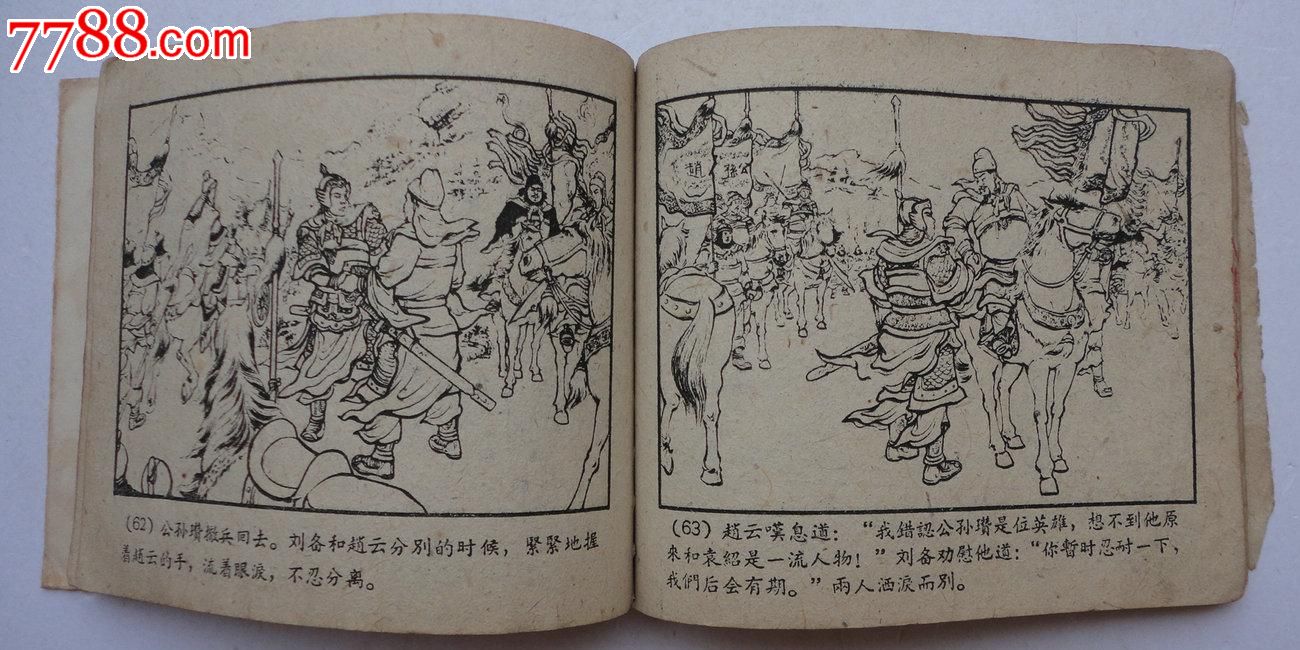 7788.com
趙
公孫
(62) 公孙瓚撤兵回去。刘备和趙云分別的时候，緊緊地握
着趙云的手，流着眼淚，不忍分离。
(63) 趙云嘆息道：“我錯認公孙瓚是位英雄，想不到他原
來和袁紹是一流人物！”刘备劝慰他道：“你暫时忍耐一下，
我們后会有期。”兩人洒淚而別。